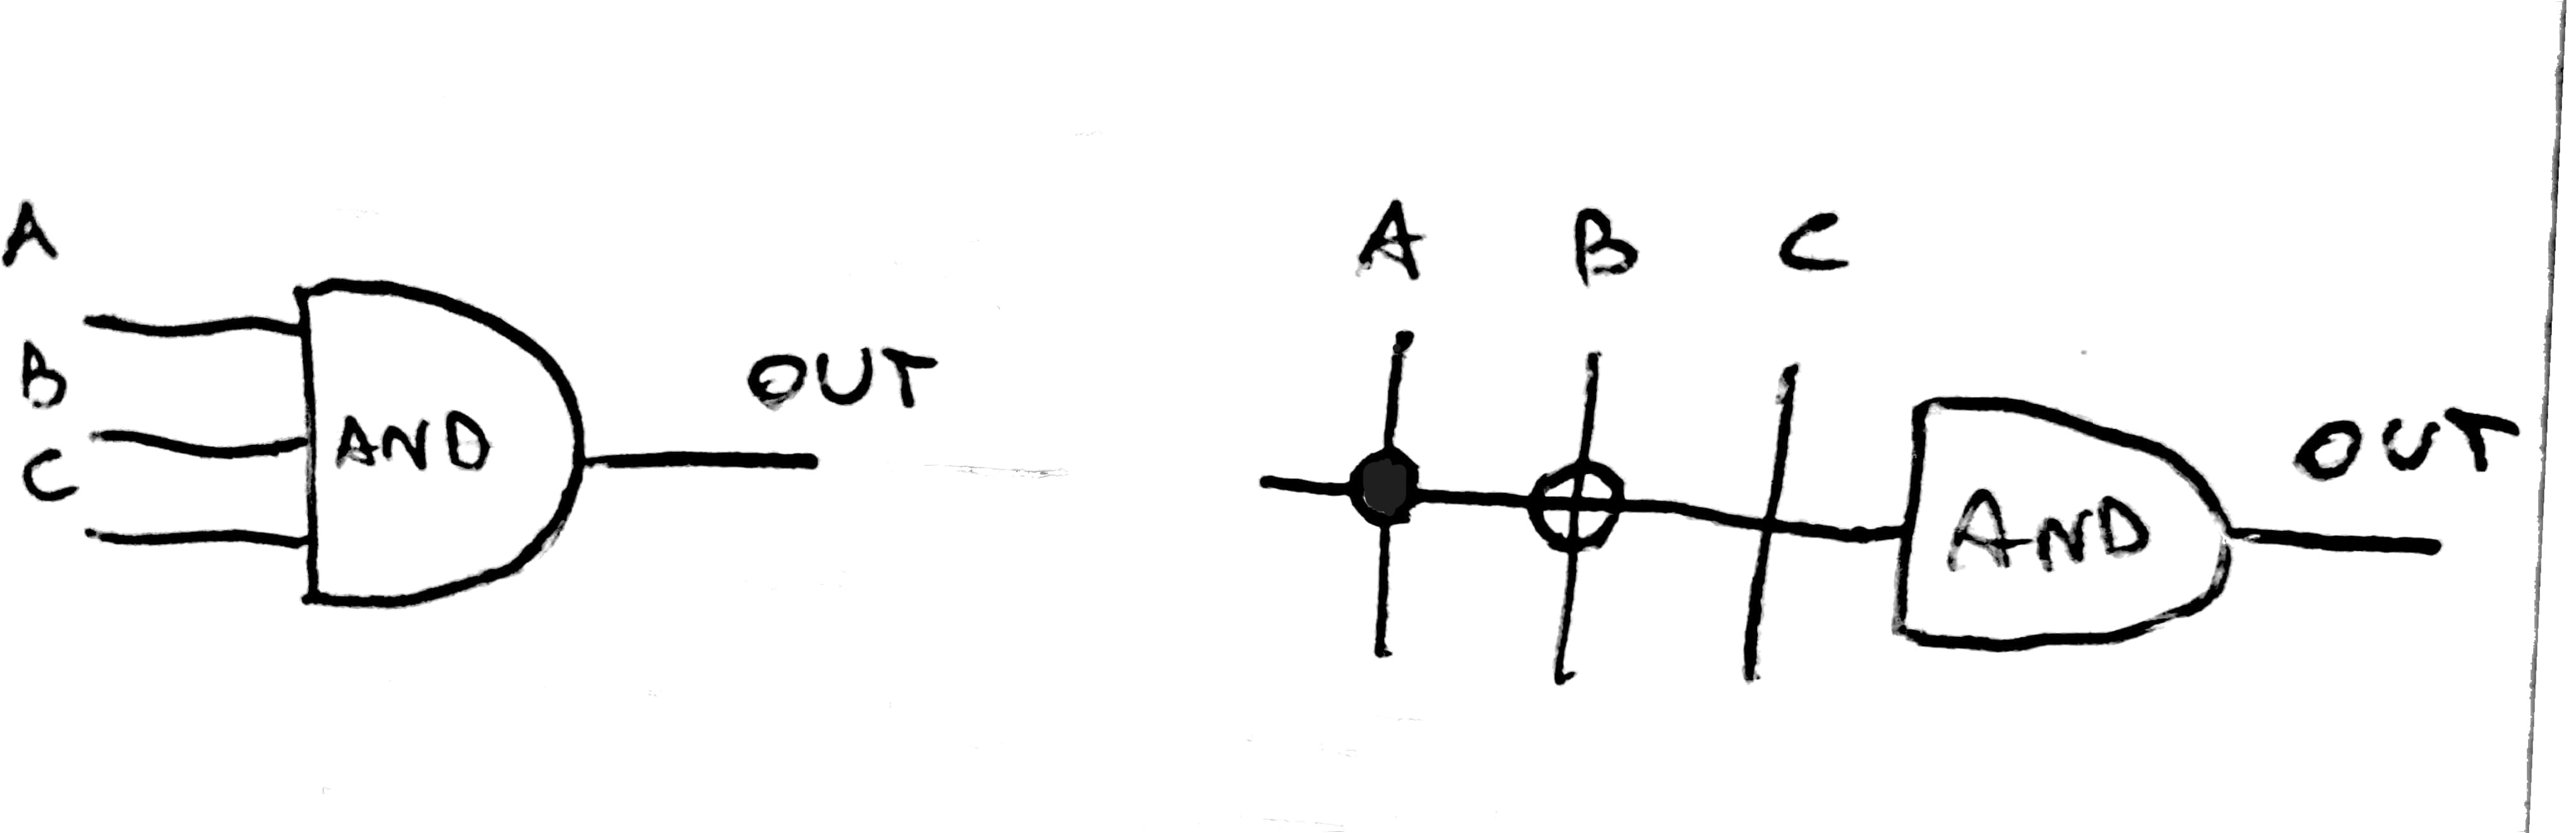 A
B
C
AND
OUT
A B C
AND
OUT